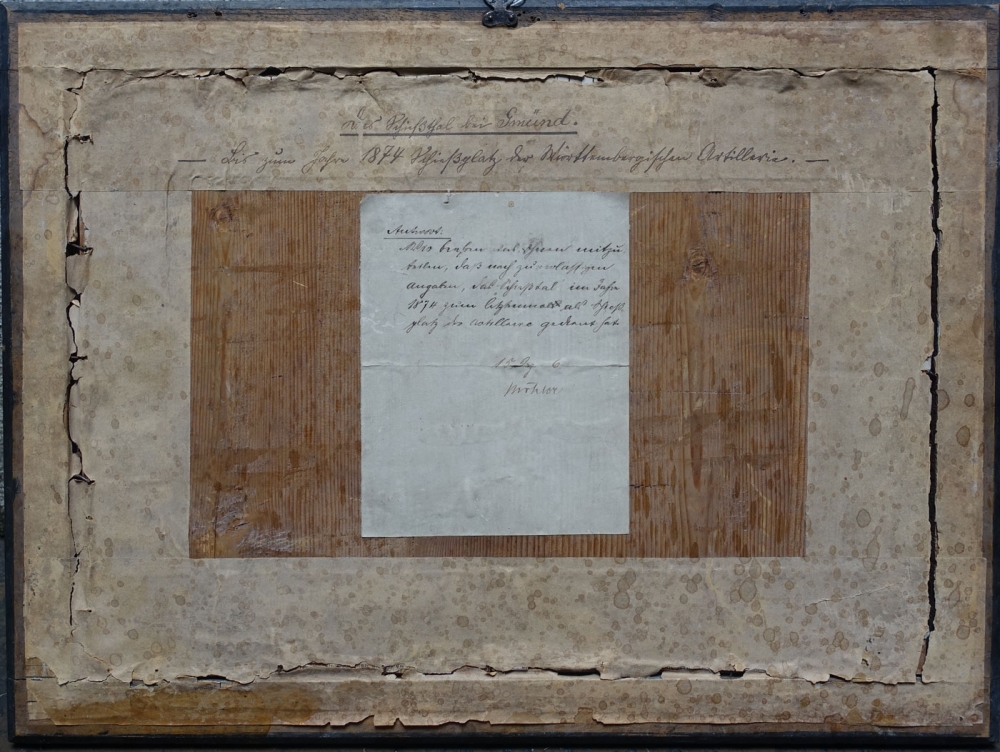 Das Schießthal bei Gmünd.
— Bis zum Jahre 1874 Schießplatz der Württembergischen Artillerie. —
Antwort.
beehren das mitzu
teilen, daß nach zuverlässigen
Angaben, das Schießtal im Jahre
1874 zum letztenmal als Schieß
platz der Artillerie gedient hat